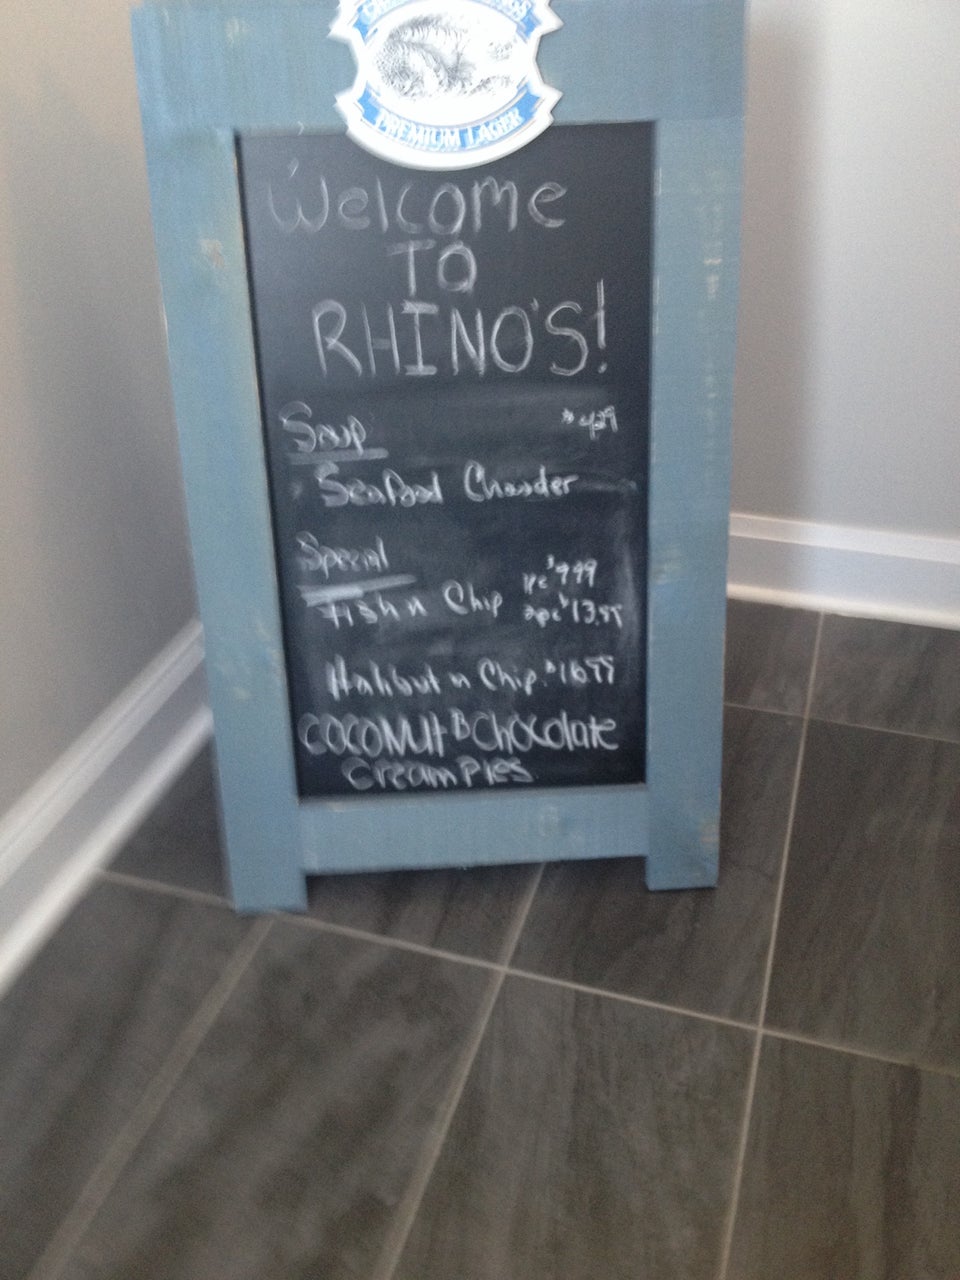 PREMIUM LAGER
Welcome
TO
RHINO'S!
Soup $4.29
Seafood Chowder
Special
Fish n Chip 1pc $9.99
2pc $13.99
Halibut n Chip $16.99
COCONUt & Chocolate
Cream Pies